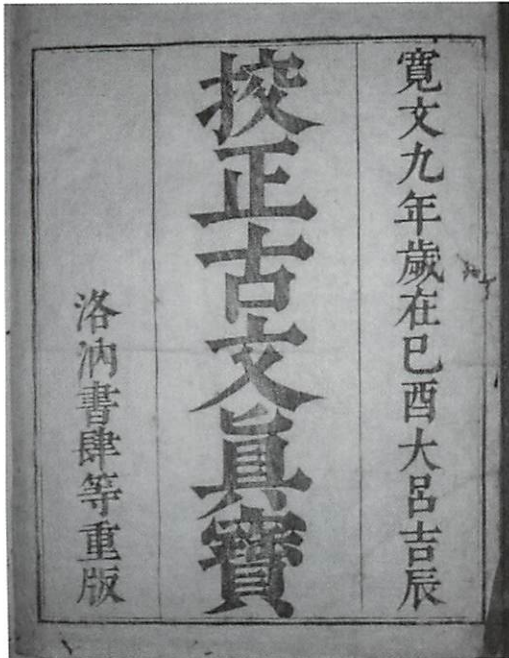 寛文九年歳在己酉大呂吉辰
挍正古文眞寶
洛汭書肆等重版